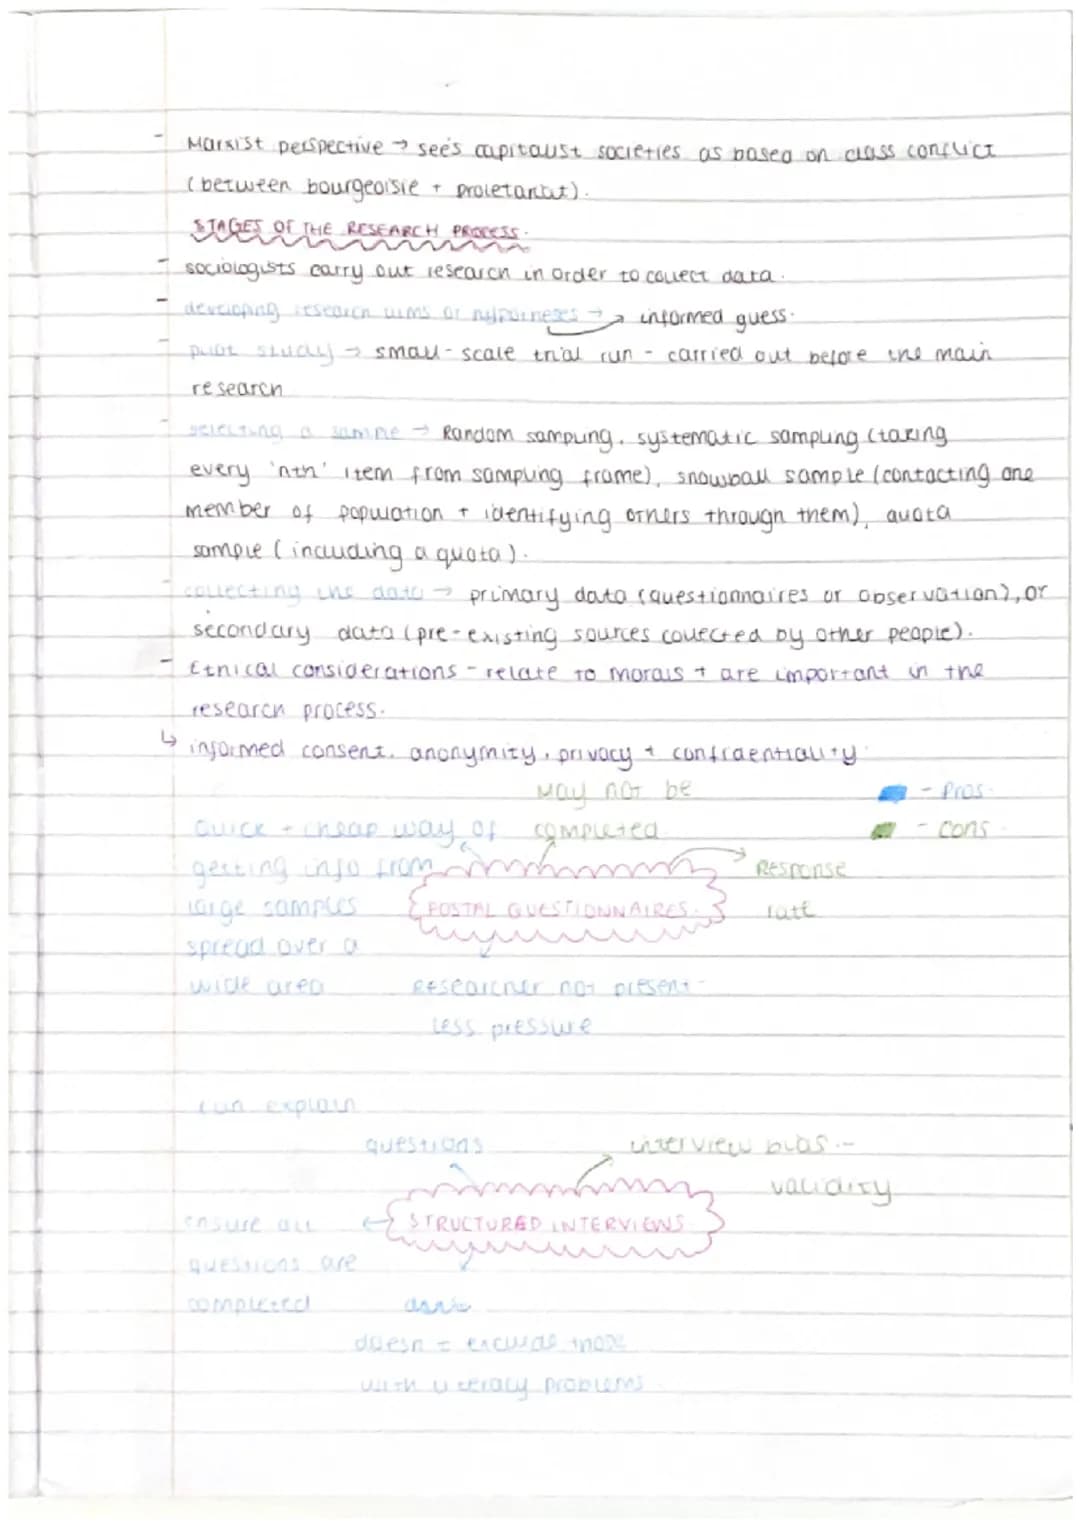 - Marxist perspective → see's capitalist societies as based on class conflict
(between bourgeoisie + proletariat).
STAGES OF THE RESEARCH PROCESS.
- sociologists carry out research in order to collect data.
- developing research aims or hypotheses → informed guess.
- pilot study → small-scale trial run - carried out before the main
research
- selecting a sample → Random sampling, systematic sampling (taking
every 'nth' item from sampling frame), snowball sample (contacting one
member of population + identifying others through them), quota
sample (including a quota).
- collecting the data → primary data (questionnaires or observation), or
secondary data (pre-existing sources collected by other people).
- Ethical considerations - relate to morals + are important in the
research process.
↳ informed consent, anonymity, privacy + confidentiality.
- Pros.
- cons.
May not be
completed
Quick + cheap way of
getting info from
large samples
spread over a
wide area
Response
rate
POSTAL QUESTIONNAIRES.
Researcher not present -
less pressure
can explain
questions
interview bias -
validity
STRUCTURED INTERVIEWS.
ensure all
questions are
completed
doesn't exclude those
with literacy problems